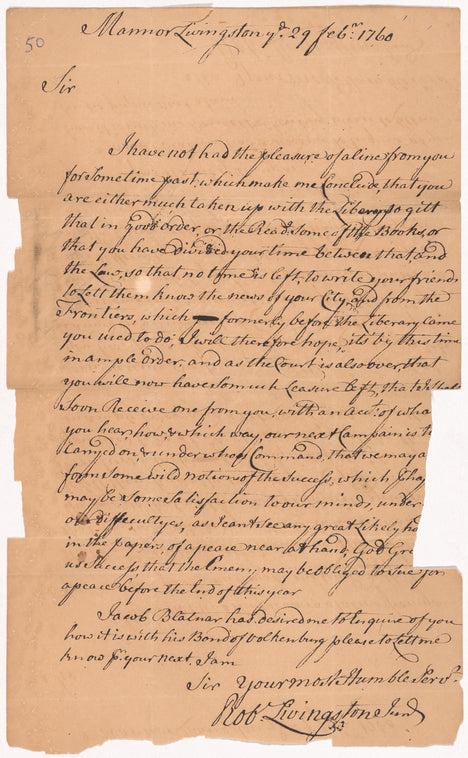 50
Mannor Livingston yᵈ. 29 febʳʸ 1760
Sir
I have not had the pleasure of a line from you
for Sometime past, which make me Conclude, that you
are either much taken up with the Liberary to gitt
that in good order, or the Readᵍ. some of the Books, or
that you have divided your time between that and
the Law, so that no time is left, to write your friends
to Lett them know the news of your City, and from the
Frontiers, which formerly, before the Liberary Came
you used to do, I will therefore hope, its by this time
in ample order, and as the Court is also over, that
you will now have so much Leasure left, that I shall
soon Receive one from you, with an accᵗ. of wha
you hear, how, & which way, our next Campain is to
Carryed on, & under whos Command, that we may a
form some wild notions of the Success, which
may be some Satisfaction to our minds, under
our difficultyes, as I can't see any great Likely ho
in the papers, of a peace near at hand, God Gra
us Success that the Emeny, may be obliged to sue for
a peace before the End of this year
Jacob Blatnar has desired me to Enquire of you
how it is with his Bond of Volkenburg please to Lett me
know pʳ. your next, I am
Sir Your most Humble Servᵗ.
Robᵗ. Livingston Junʳ